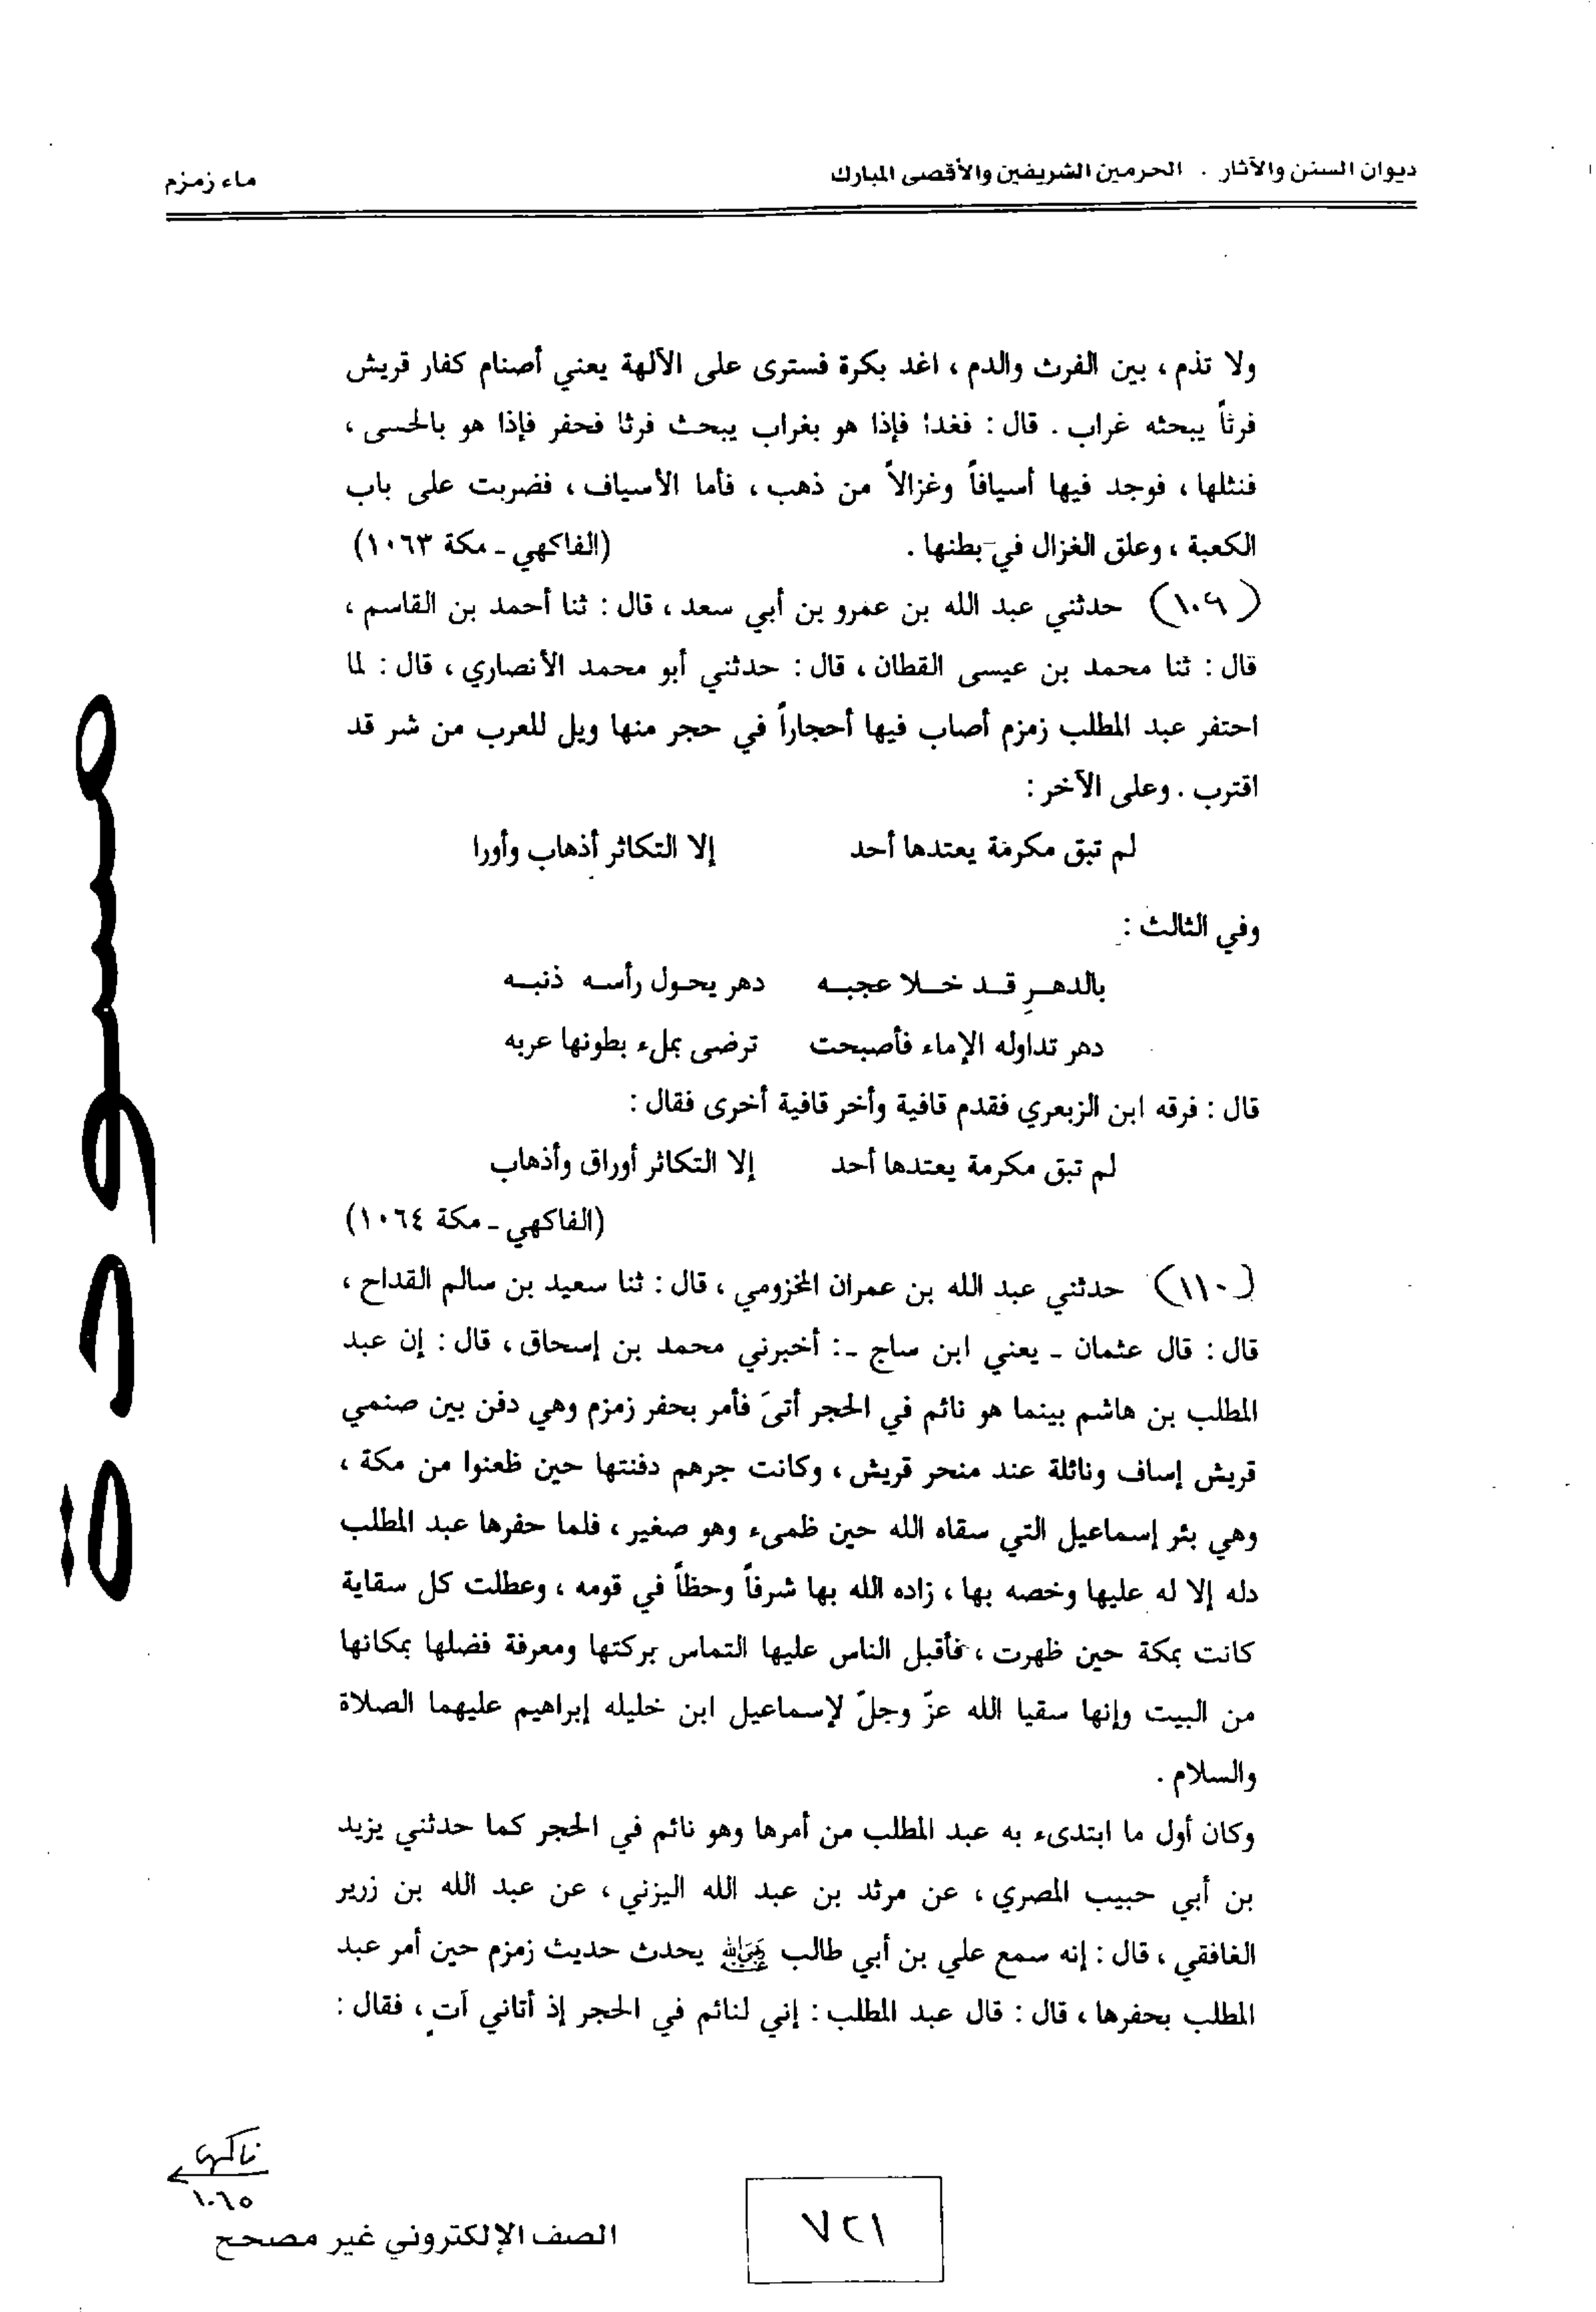 ديوان السنن والآثار . الحرمين الشريفين والأقصى المبارك
ماء زمزم
ولا تذم ، بين الفرث والدم ، اغد بكرة فسترى على الآلهة يعني أصنام كفار قريش
فرثاً يبحثه غراب . قال : فغدا فإذا هو بغراب يبحث فرثا فحفر فإذا هو بالحسى ،
فنثلها ، فوجد فيها أسيافاً وغزالاً من ذهب ، فأما الأسياف ، فضربت على باب
الكعبة ، وعلق الغزال في بطنها . (الفاكهي ـ مكة ١٠٦٣)
(١٠٩) حدثني عبد الله بن عمرو بن أبي سعد ، قال : ثنا أحمد بن القاسم ،
قال : ثنا محمد بن عيسى القطان ، قال : حدثني أبو محمد الأنصاري ، قال : لما
احتفر عبد المطلب زمزم أصاب فيها أحجاراً في حجر منها ويل للعرب من شر قد
اقترب . وعلى الآخر :
لم تبق مكرمة يعتدها أحد إلا التكاثر أذهاب وأورا
وفي الثالث :
بالدهرِ قد خلا عجبه دهر يحول رأسه ذنبه
دهر تداوله الإماء فأصبحت ترضى بملء بطونها عربه
قال : فرقه ابن الزبعري فقدم قافية وأخر قافية أخرى فقال :
لم تبق مكرمة يعتدها أحد إلا التكاثر أوراق وأذهاب
(الفاكهي ـ مكة ١٠٦٤)
(١١٠) حدثني عبد الله بن عمران المخزومي ، قال : ثنا سعيد بن سالم القداح ،
قال : قال عثمان ـ يعني ابن ساج ـ : أخبرني محمد بن إسحاق ، قال : إن عبد
المطلب بن هاشم بينما هو نائم في الحجر أتىَ فأمر بحفر زمزم وهي دفن بين صنمي
قريش إساف ونائلة عند منحر قريش ، وكانت جرهم دفنتها حين ظعنوا من مكة ،
وهي بئر إسماعيل التي سقاه الله حين ظمىء وهو صغير ، فلما حفرها عبد المطلب
دله إلا له عليها وخصه بها ، زاده الله بها شرفاً وحظاً في قومه ، وعطلت كل سقاية
كانت بمكة حين ظهرت ، فأقبل الناس عليها التماس بركتها ومعرفة فضلها بمكانها
من البيت وإنها سقيا الله عزّ وجلّ لإسماعيل ابن خليله إبراهيم عليهما الصلاة
والسلام .
وكان أول ما ابتدىء به عبد المطلب من أمرها وهو نائم في الحجر كما حدثني يزيد
بن أبي حبيب المصري ، عن مرثد بن عبد الله اليزني ، عن عبد الله بن زرير
الغافقي ، قال : إنه سمع علي بن أبي طالب رضي الله عنه يحدث حديث زمزم حين أمر عبد
المطلب بحفرها ، قال : قال عبد المطلب : إني لنائم في الحجر إذ أتاني آتٍ ، فقال :
مسودة
فاكهي
١٠٦٥
٧٢١
الصف الإلكتروني غير مصحح